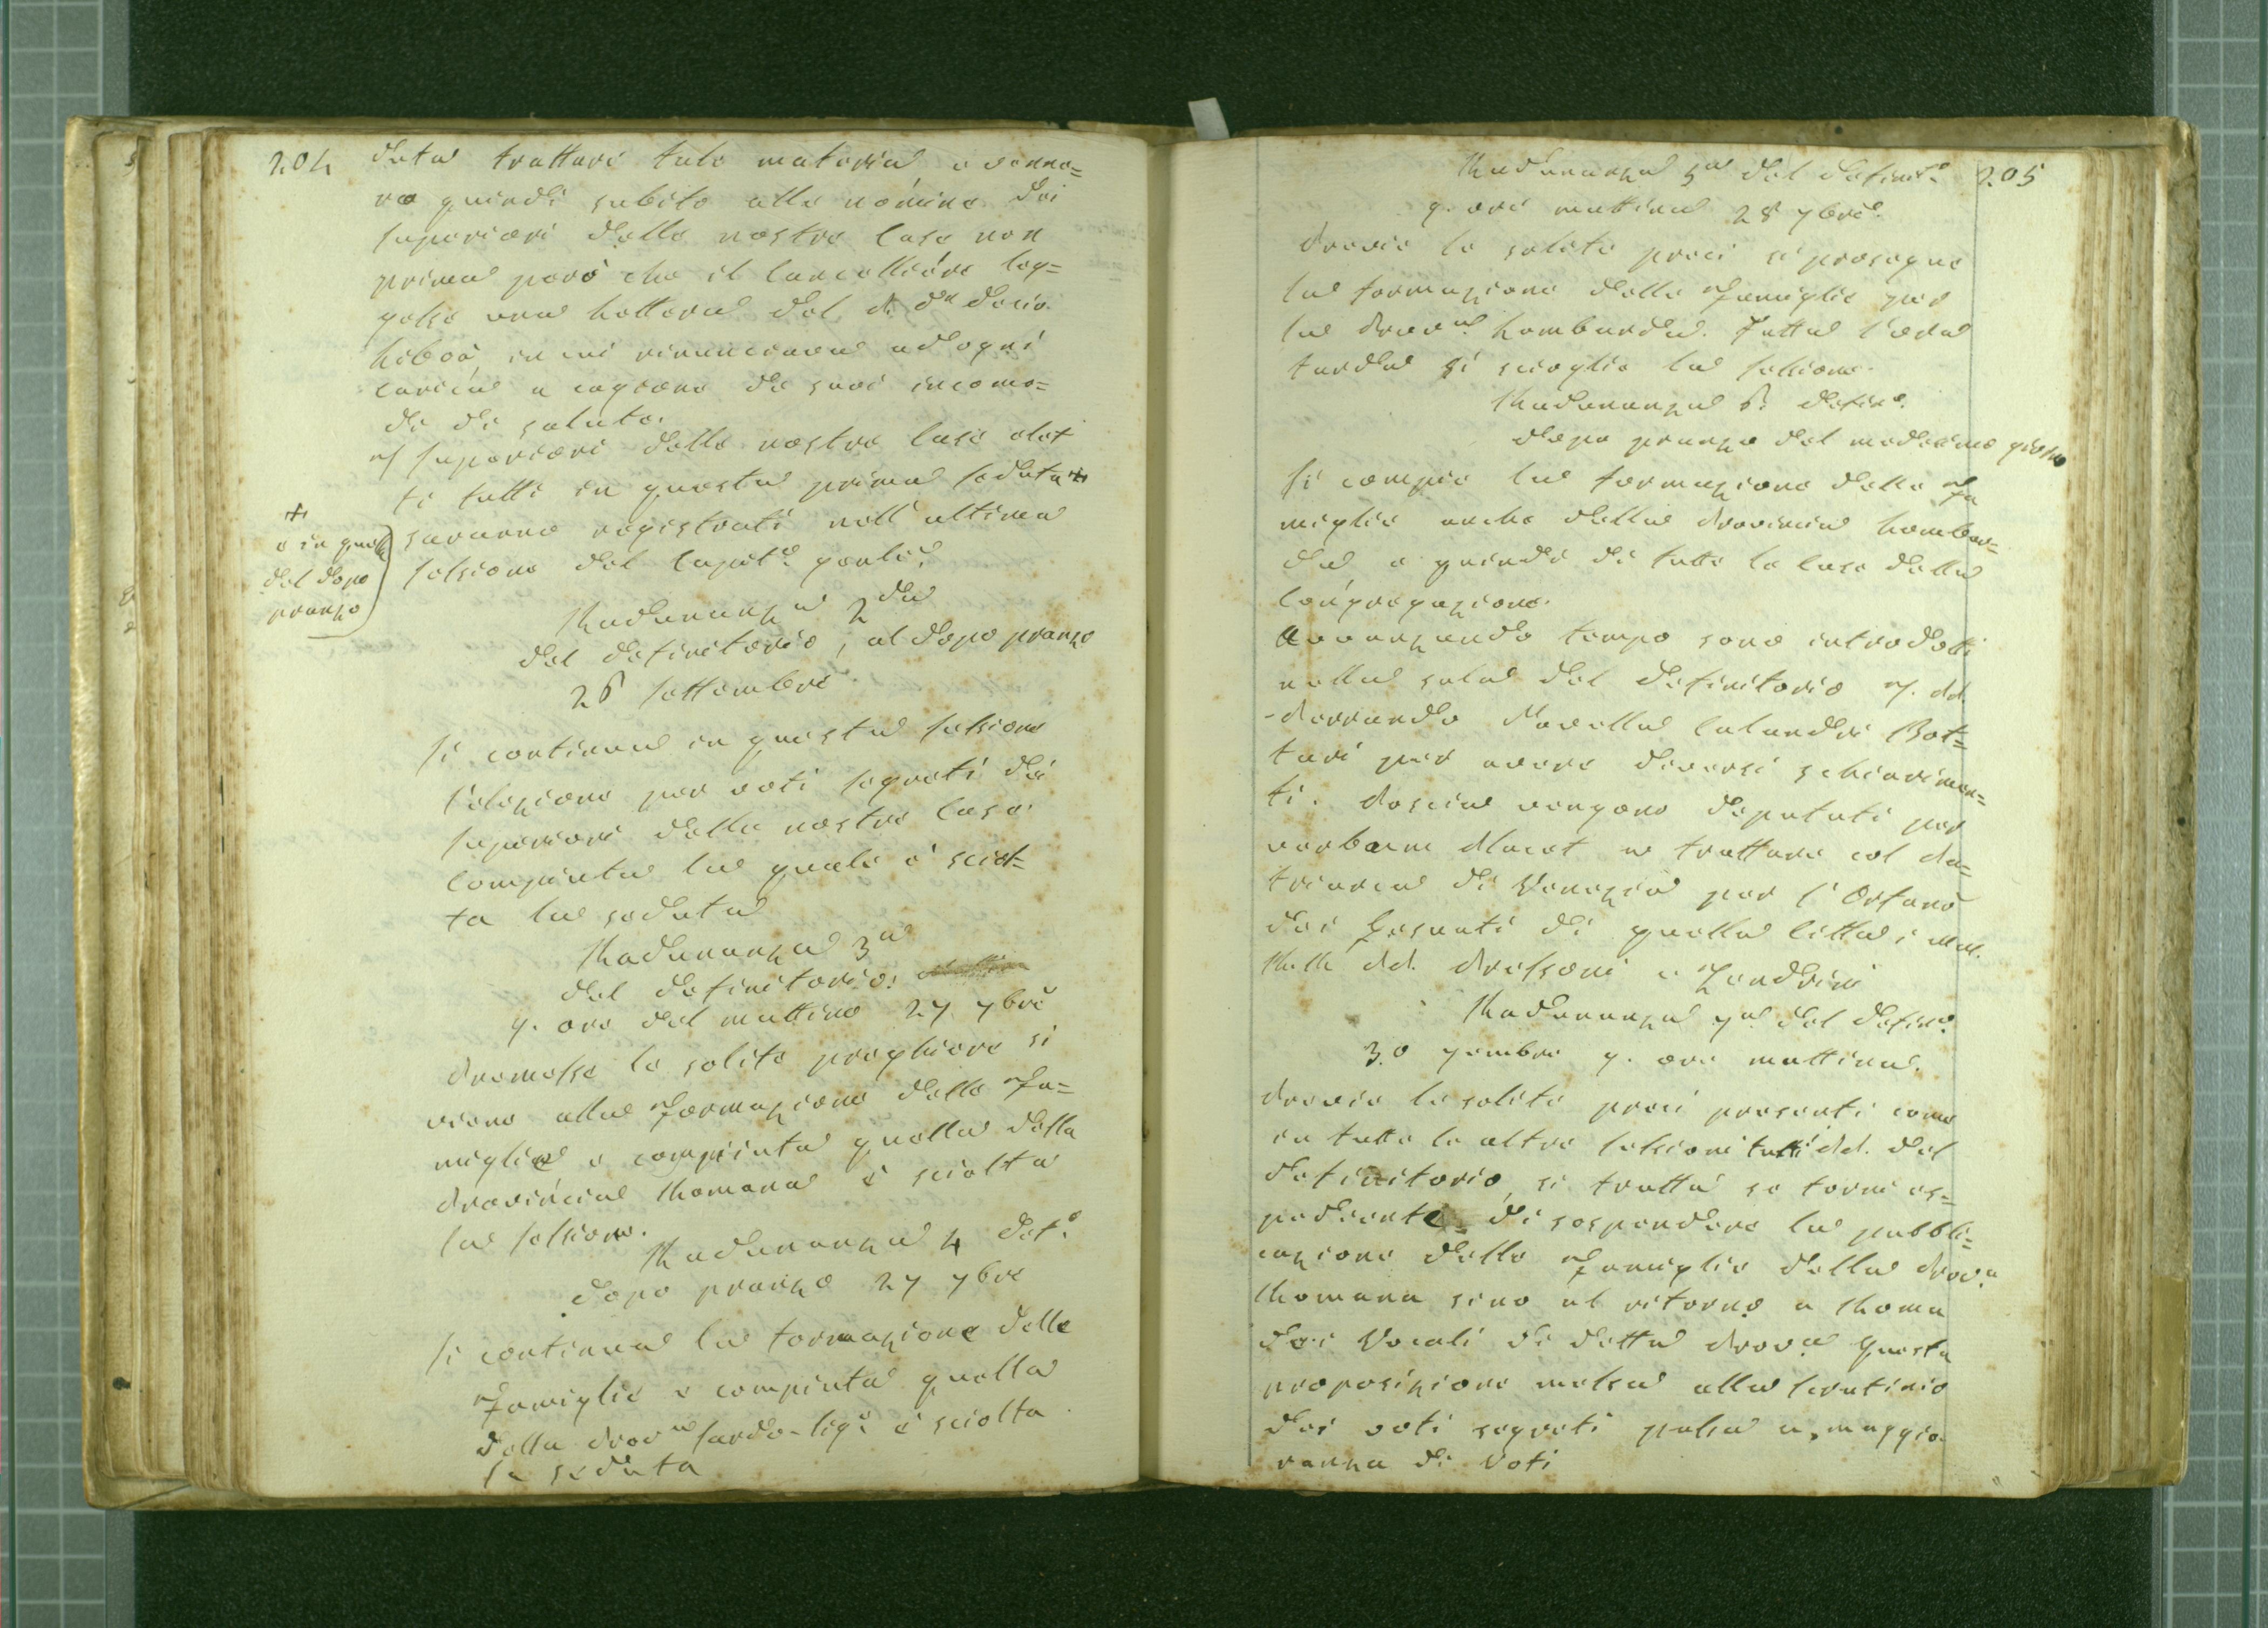 204
duta trattare tale materia, e venne=
ro quindi subito alla nomina dei
Superiori delle nostre Case non
prima però che il Cancelliere leg=
gesse una Lettera del P. Dn Decio
Libois, in cui rinunciava ad ogni
carica a cagione de suoi incomo=
di di salute.
I Superiori delle nostre Case elet
ti tutti in questa prima Seduta +
saranno registrati nell'ultima
Sessione del Capit.o genle.
+
e in quella
del dopo
pranzo
Radunanza 2da
del Definitorio, al dopo pranzo
26 Settembre
Si continua in questa Sessione
l'elezione per voti segreti dei
Superiori delle nostre Case.
Compiuta la quale è sciol=
ta la seduta
Radunanza 3a
del Definitorio.
9. ore del mattino 27 7bre
Premesse le solite preghiere si
viene alla Formazione delle Fa=
miglie e compiuta quella della
Provincia Romana è sciolta
la Sessione.
Radunanza 4 Def.o
dopo pranzo 27 7bre
Si continua la formazione delle
Famiglie e compiuta quella
della Prova Sardo-Lige è sciolta
la seduta
205
Radunanza 5a del Definit.o
9. ore mattina 28 7bre.
Previe le solite preci si prosegue
la formazione delle Famiglie per
la Prova Lombarda. Fatta l'ora
tarda si scioglie la Sessione.
Radunanza 6. Defino.
dopo pranzo del medesimo giorno
Si compie la formazione delle Fa
miglie anche della Provincia Lombar=
da, e quindi di tutte le Case della
Congregazione.
Avvanzando tempo sono introdotti
nella sala del Definitorio i PP.
Ferrando Novella Calandri Bot=
tari per avere diversi schiarimen=
ti. Poscia vengono deputati per
verbum placet a trattare col Pa=
triarca di Venezia per l'Orfano
dei Gesuati di quella Città i MM.
RR. PP. Pressoni e Zendrini
Radunanza 7a del Defin.o
30 7embre 9. ore mattina.
Previe le solite preci presenti come
in tutte le altre Sessioni tutti i PP. del
Definitorio, si tratta se torni es=
pediente di sospendere la pubbli=
cazione delle Famiglie della Prov.a
Romana sino al ritorno a Roma
dei Vocali di detta Prov.a Questa
proposizione messa alla Scrutinio
dei voti segreti passa a maggio
ranza di Voti